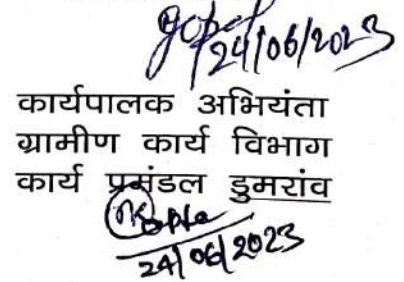 24/06/2023
कार्यपालक अभियंता
ग्रामीण कार्य विभाग
कार्य प्रमंडल डुमरांव
24/06/2023